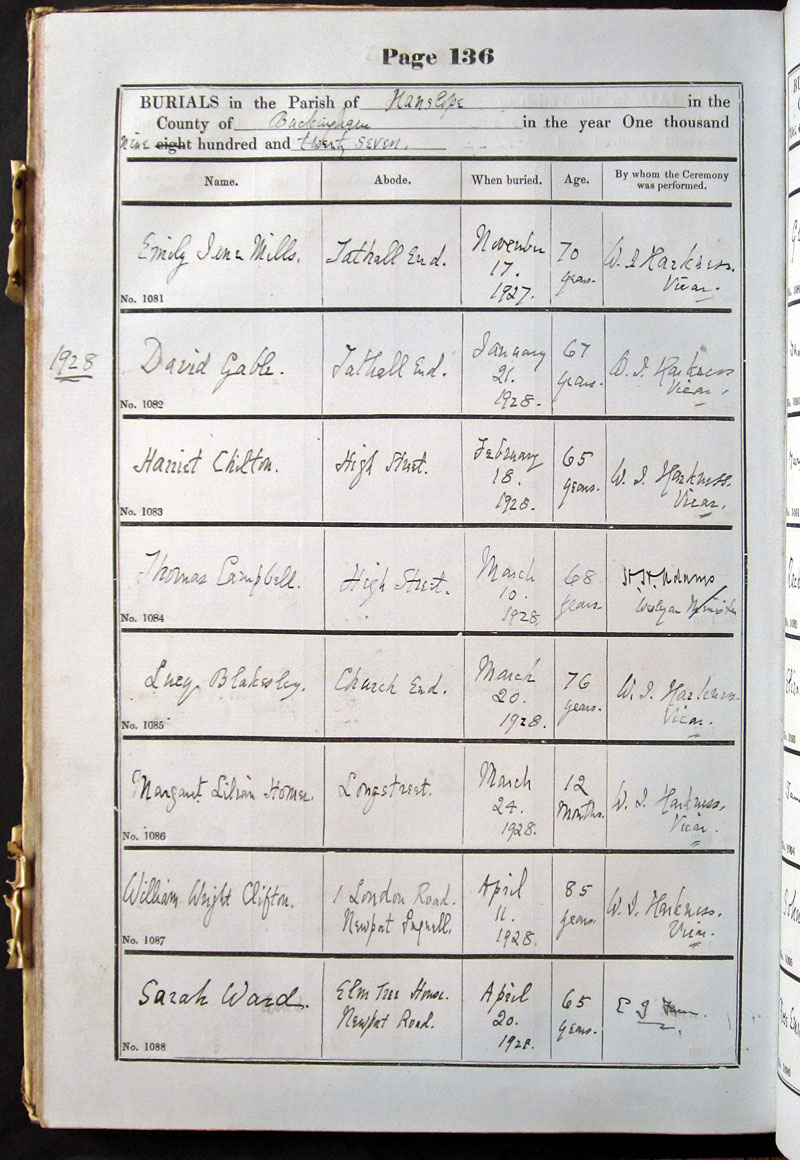 Page 136
BURIALS in the Parish of Hanslope in the
County of Buckingham in the year One thousand
nine eight hundred and twenty seven.
Name. Abode. When buried. Age. By whom the Ceremony was performed.
Emily Jane Mills. Tathall End. November 17. 1927. 70 years. W. J. Harkness. Vicar.
No. 1081
1928
David Gable. Tathall End. January 21. 1928. 67 years. W. J. Harkness Vicar.
No. 1082
Harriet Chilton. High Street. February 18. 1928. 65 years. W. J. Harkness. Vicar.
No. 1083
Thomas Campbell. High Street. March 10. 1928. 68 years. Adams Wesleyan Minister
No. 1084
Lucy Blakesley. Church End. March 20. 1928. 76 years. W. J. Harkness. Vicar.
No. 1085
Margaret Lilian Homer. Longstreet. March 24. 1928. 12 Months. W. J. Harkness. Vicar.
No. 1086
William Wright Clifton. 1 London Road. Newport Pagnell. April 11. 1928. 85 years. W. J. Harkness. Vicar.
No. 1087
Sarah Ward. Elm Tree House. Newport Road. April 20. 1928. 65 years. E
No. 1088